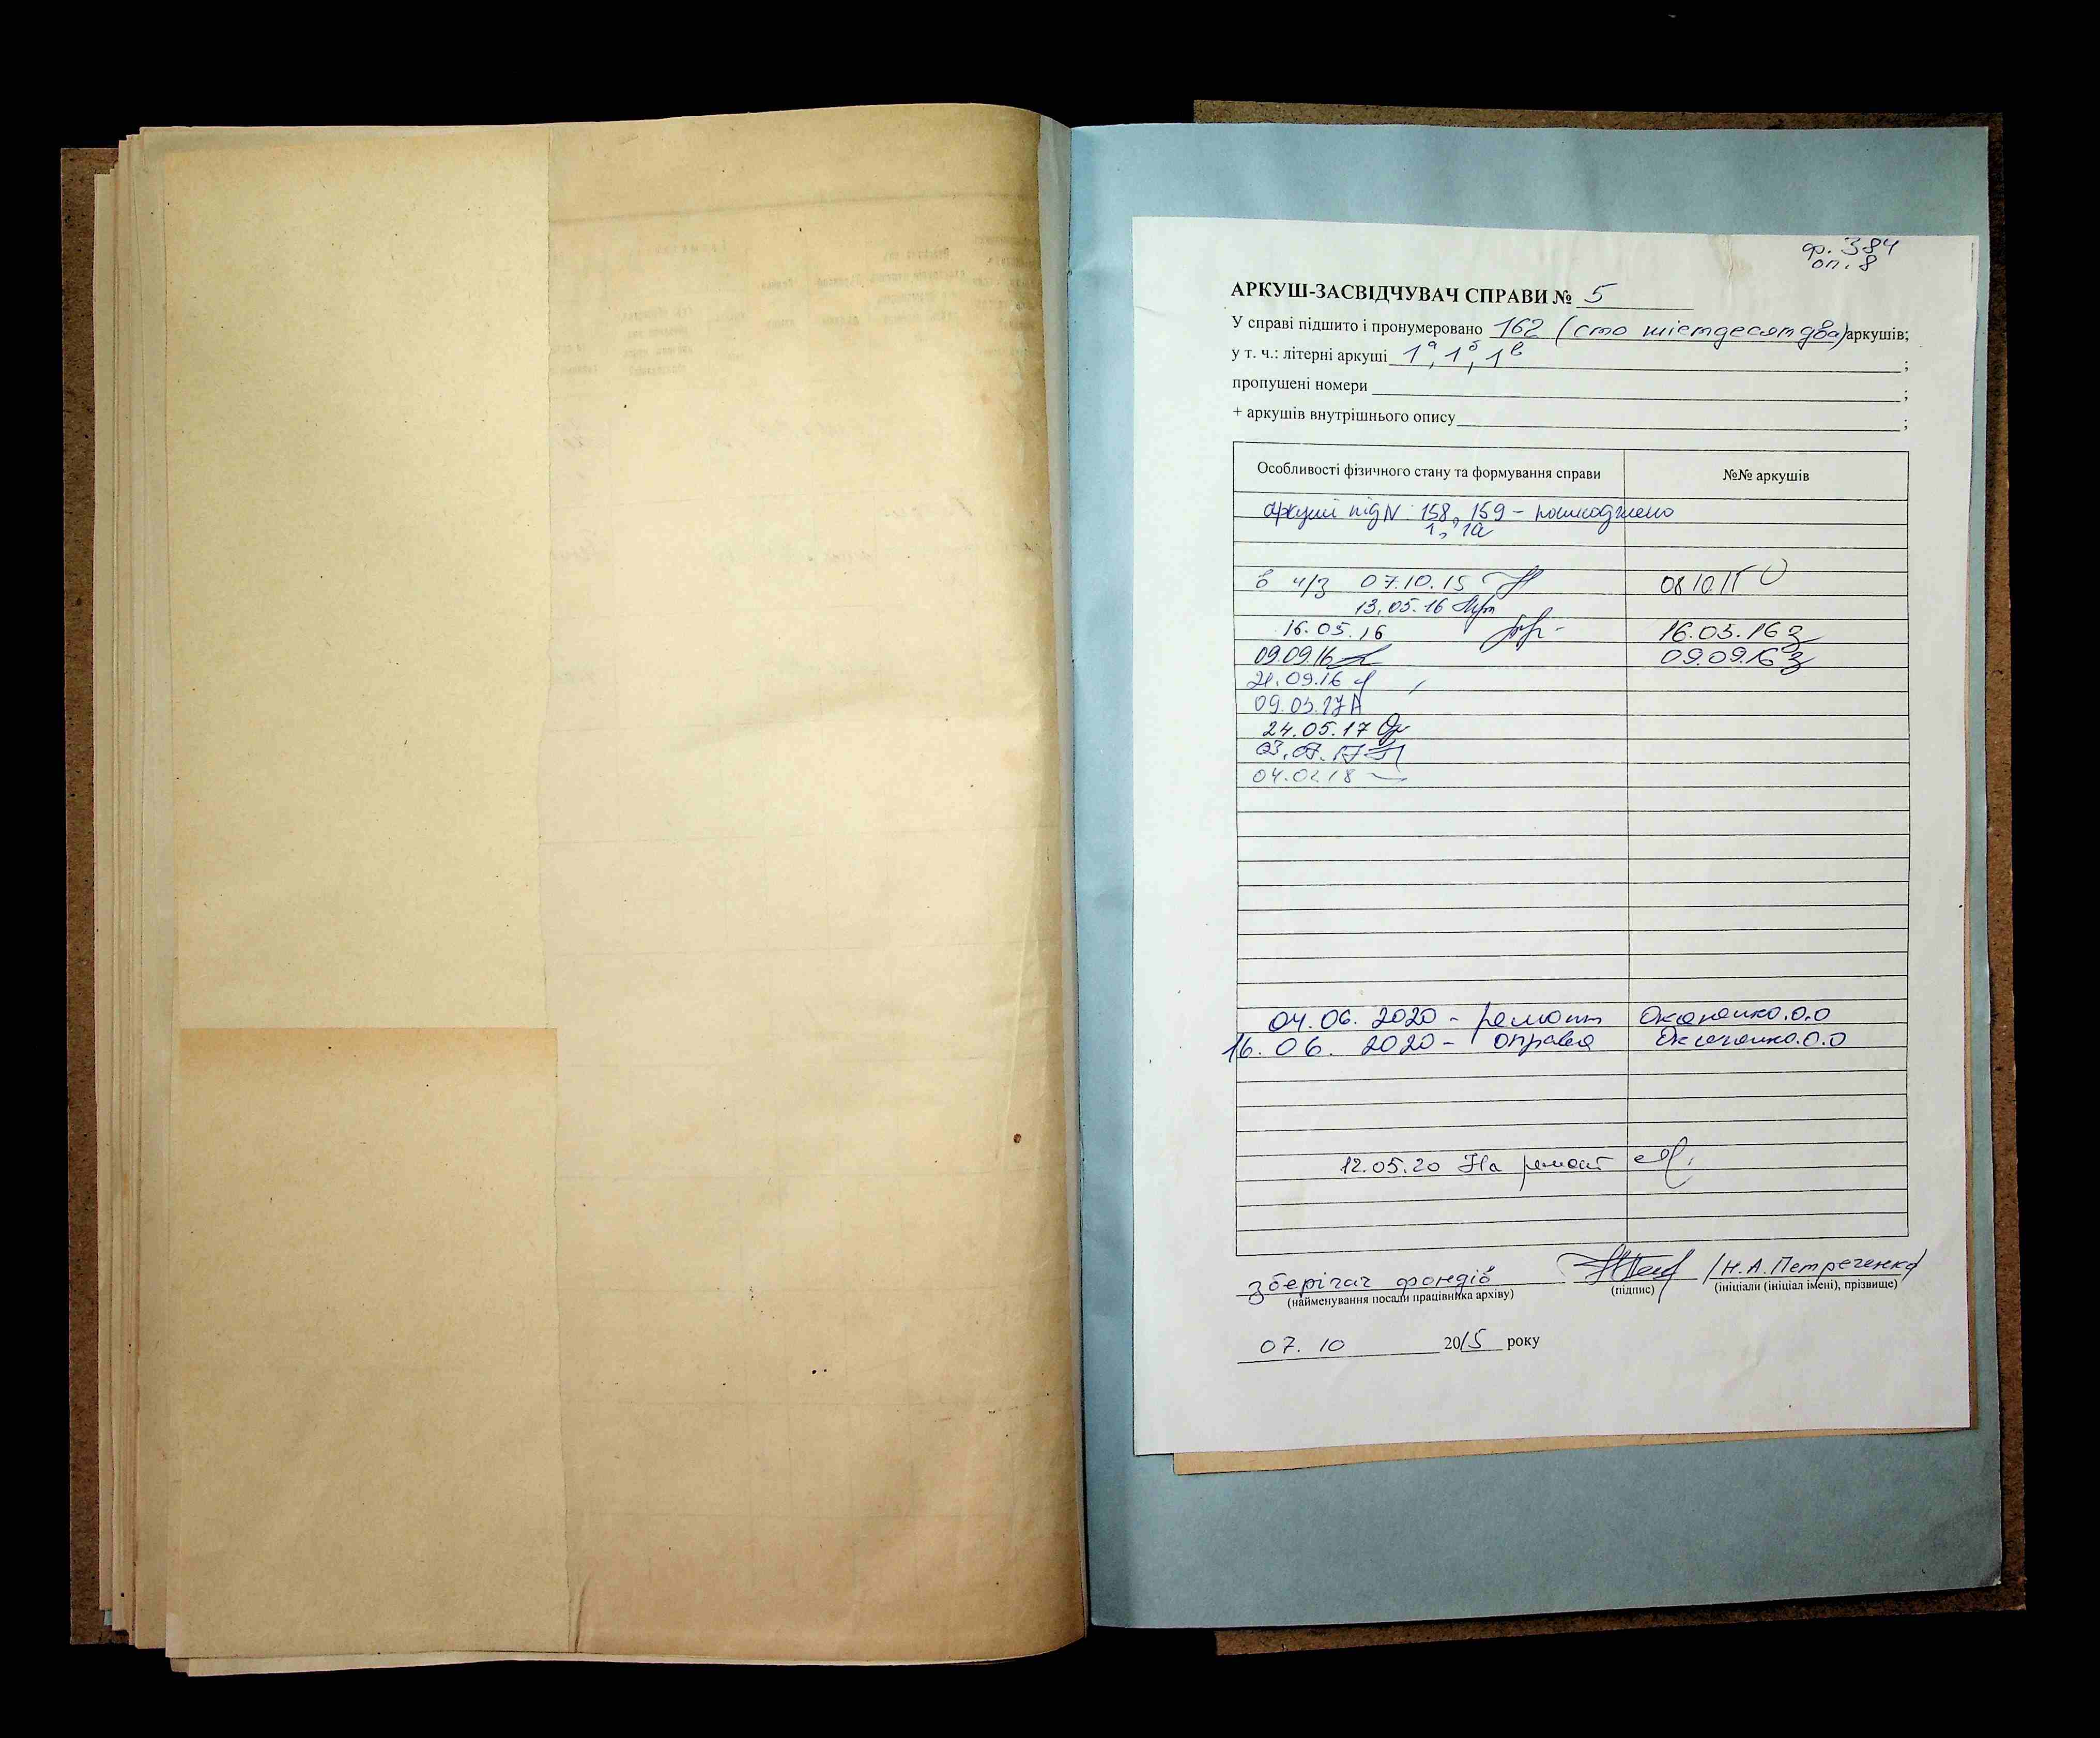 ф. 384
оп. 8
АРКУШ-ЗАСВІДЧУВАЧ СПРАВИ № 5
У справі підшито і пронумеровано 162 (сто шістдесят два) аркушів;
у т. ч.: літерні аркуші 1а, 1б, 1в ;
пропущені номери ;
+ аркушів внутрішнього опису ;
Особливості фізичного стану та формування справи №№ аркушів
Аркуші під N: 158, 159 - пошкоджено
1, 1а
в ч/з 07.10.15 08.10.15
13.05.16
16.05.16 16.05.16 з
09.09.16 09.09.16 з
21.09.16
09.03.17
24.05.17
03.07.17
04.02.18
04.06. 2020 - ремонт
16. 06. 2020 - оправа
12.05.20 На ремонт
зберігач фондів /Н.А. Петреченко/
(найменування посади працівника архіву) (підпис) (ініціали (ініціал імені), прізвище)
07. 10 2015 року